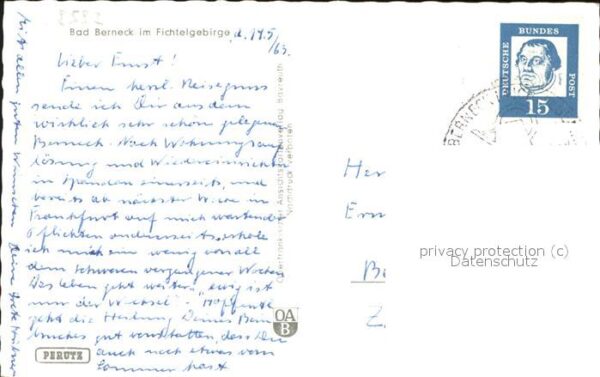 Bad Berneck im Fichtelgebirge, d. 14.5/63.
Lieber Ernst!
Einen herzl. Reisegruss
sende ich Dir aus dem
wirklich sehr schön gelegenen
Berneck. Nach Wohnungsauf-
lösung und Wiedereinrichten
in Spandau einerseits, und
bereits ab nächster Woche in
Frankfurt auf mich wartende
Pflichten andererseits, erhole
ich mich ein wenig von all
dem Schweren vergangener Wochen.
Das Leben geht weiter, "ewig ist
nur der Wechsel". Hoffentl.
geht die Heilung Deines Bein-
bruches gut vonstatten, dass Du
auch noch etwas vom
Sommer hast
Mit allen guten Wünschen Deine
Oberfränkischer Ansichtskartenverlag Bayreuth
Nachdruck verboten
OA
B
PERUTZ
DEUTSCHE BUNDESPOST
15
BERNECK
Her
Ern
B
Z
privacy protection (c)
Datenschutz